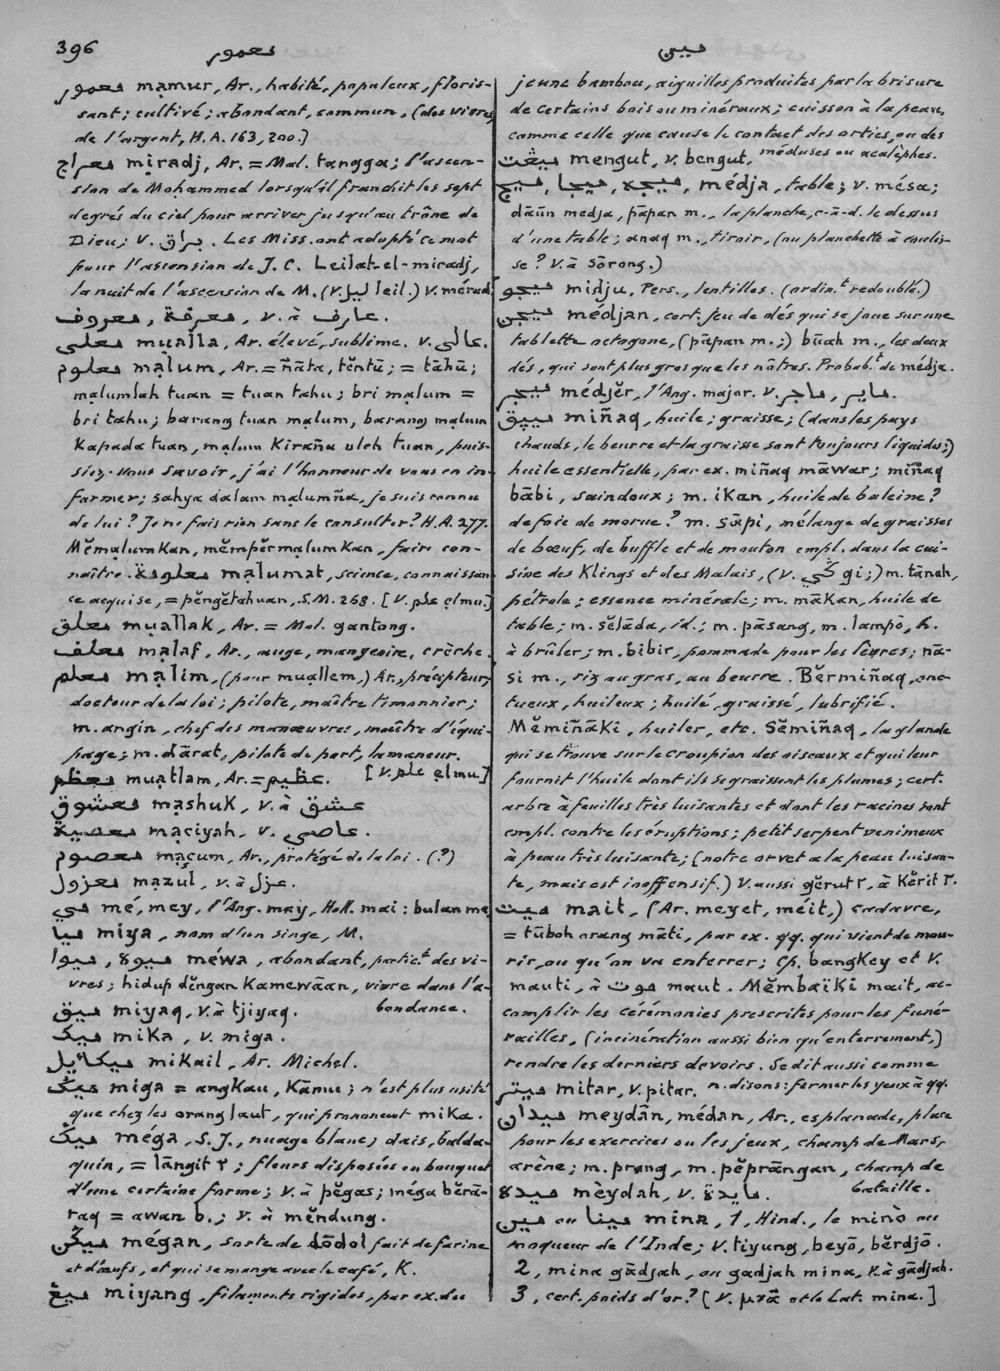 396
معمور
مين
معمور mamur, Ar., habité, populeux, floris-
sant; cultivé; abondant, commun, (des vivres
de l'argent, H.A. 163, 200.)
معراج miradj, Ar. = Mal. tangga; l'ascen-
sion de Mohammed lorsqu'il franchit les sept
degrés du ciel pour arriver jusqu'au trône de
Dieu; v. براق. Les Miss. ont adopté ce mot
pour l'ascension de J. C. Leilat-el-miradj,
la nuit de l'ascension de M. (v. ليل leil.) v. mérad
معرفة, معروف, v. à عارف.
معلى mualla, Ar. élevé, sublime. v. عالى.
معلوم malum, Ar. = ñāta, tĕntū; = tāhū;
malumlah tuan = tuan tahu; bri malum =
bri tahu; barang tuan malum, barang malum
kapada tuan, malum kiraña uleh tuan, puis-
siez-vous savoir, j'ai l'honneur de vous en in-
former; sahya dalam malumña, je suis connu
de lui? Je ne fais rien sans le consulter? H.A. 277.
Mĕmalumkan, mĕmpĕrmalumkan, faire con-
naître. معلومة malumat, science, connaissan
ce acquise, = pĕngĕtahuan, S.M. 268. [v. علم elmu.]
معلق muallak, Ar. = Mal. gantong.
معلف malaf, Ar., auge, mangeoire, crèche.
معلم malim, (pour muallem,) Ar., précepteur,
docteur de la loi; pilote, maître timonnier;
m. angin, chef des manœuvres, maître d'équi-
page; m. dārat, pilote de port, lamaneur.
معظم muatlam, Ar. = عظيم. [v. علم elmu.]
معشوق mashuk, v. à عشق
معصية maciyah, v. عاصي.
معصوم maçum, Ar., protégé de la loi. (?)
معزول mazul, v. à عزل.
مي mé, mey, l'Ang. may, Holl. mai: bulan me
ميا miya, nom d'un singe, M.
ميوه, ميوا méwa, abondant, partic.t des vi-
vres; hidup dĕngan kamewāan, vivre dans l'a-
bondance.
ميق miyaq, v. à tjiyaq.
ميک mika, v. miga.
ميکائيل mikail, Ar. Michel.
ميݢ miga = angkau, kāmu; n'est plus usité
que chez les orang laut, qui prononcent mika.
ميݢ méga, S.J., nuage blanc; dais, balda-
quin, = lāngit ٢; fleurs disposées en bouquet
d'une certaine forme; v. à pĕgas; méga bĕrā-
raq = awan b.; v. à mĕndung.
ميݢن megan, sorte de dōdol fait de farine
et d'œufs, et qui se mange avec le café, K.
ميڠ miyang, filaments rigides, par ex. du
jeune bambou, aiguilles produites par la brisure
de certains bois ou minéraux; cuisson à la peau,
comme celle que cause le contact des orties, ou des
méduses ou acalèphes.
ميڠت mengut, v. bengut.
ميج, ميجا, ميجه, ميج, médja, table; v. mésa;
dāün medja, pāpan m., la planche, c-à-d. le dessus
d'une table; anaq m., tiroir, (ou planchette à coulis-
se? v. à sōrong.)
ميجو midju, Pers., lentilles. (ordin.t redoublé.)
ميجن médjan, cert. jeu de dés qui se joue sur une
tablette octogone, (pāpan m.;) būah m., les deux
dés, qui sont plus gros que les nôtres. Probab.t de médja.
ميجر médjĕr, l'Ang. major. v. ماجر, ماير.
ميڽق miñaq, huile; graisse; (dans les pays
chauds, le beurre et la graisse sont toujours liquides;)
huile essentielle, par ex. miñaq māwar; miñaq
bābi, saindoux; m. ikan, huile de baleine?
de foie de morue? m. sāpi, mélange de graisses
de bœuf, de buffle et de mouton empl. dans la cui-
sine des Klings et des Malais, (v. ݢي gi;) m. tānah,
pétrole; essence minérale; m. mākan, huile de
table; m. sĕlāda, id.; m. pāsang, m. lampō, h.
à brûler; m. bibir, pommade pour les lèvres; nā-
si m., riz au gras, au beurre. Bĕrmiñaq, onc-
tueux, huileux; huilé, graissé, lubrifié.
Mĕmiñāki, huiler, etc. Sĕmiñaq, la glande
qui se trouve sur le croupion des oiseaux et qui leur
fournit l'huile dont ils se graissent les plumes; cert.
arbre à feuilles très luisantes et dont les racines sont
empl. contre les éruptions; petit serpent venimeux
à peau très luisante; (notre orvet a la peau luisan-
te, mais est inoffensif.) v. aussi gĕrut ٢, à kĕrit ٢.
ميت mait, (Ar. meyet, méit,) cadavre,
= tūboh orang māti, par ex. qq. qui vient de mou-
rir, ou qu'on va enterrer; cp. bangkey et v.
mauti, à موت maut. Mĕmbaïki mait, ac-
complir les cérémonies prescrites pour les funé-
railles, (incinération aussi bien qu'enterrement,)
rendre les derniers devoirs. Se dit aussi comme
n. disons: fermer les yeux à qq.
ميتر mitar, v. pitar.
ميدان meydān, médan, Ar., esplanade, place
pour les exercices ou les jeux, champ de Mars,
arène; m. prang, m. pĕprāngan, champ de
bataille.
ميدة mèydah, v. مايدة.
مين ou مينا mina, 1, Hind., le minò ou
moqueur de l'Inde; v. tiyung, beyō, bĕrdjō.
2, mina gādjah, ou gadjah mina, v. à gādjah.
3, cert. poids d'or? [v. μνᾶ et le Lat. mina.]